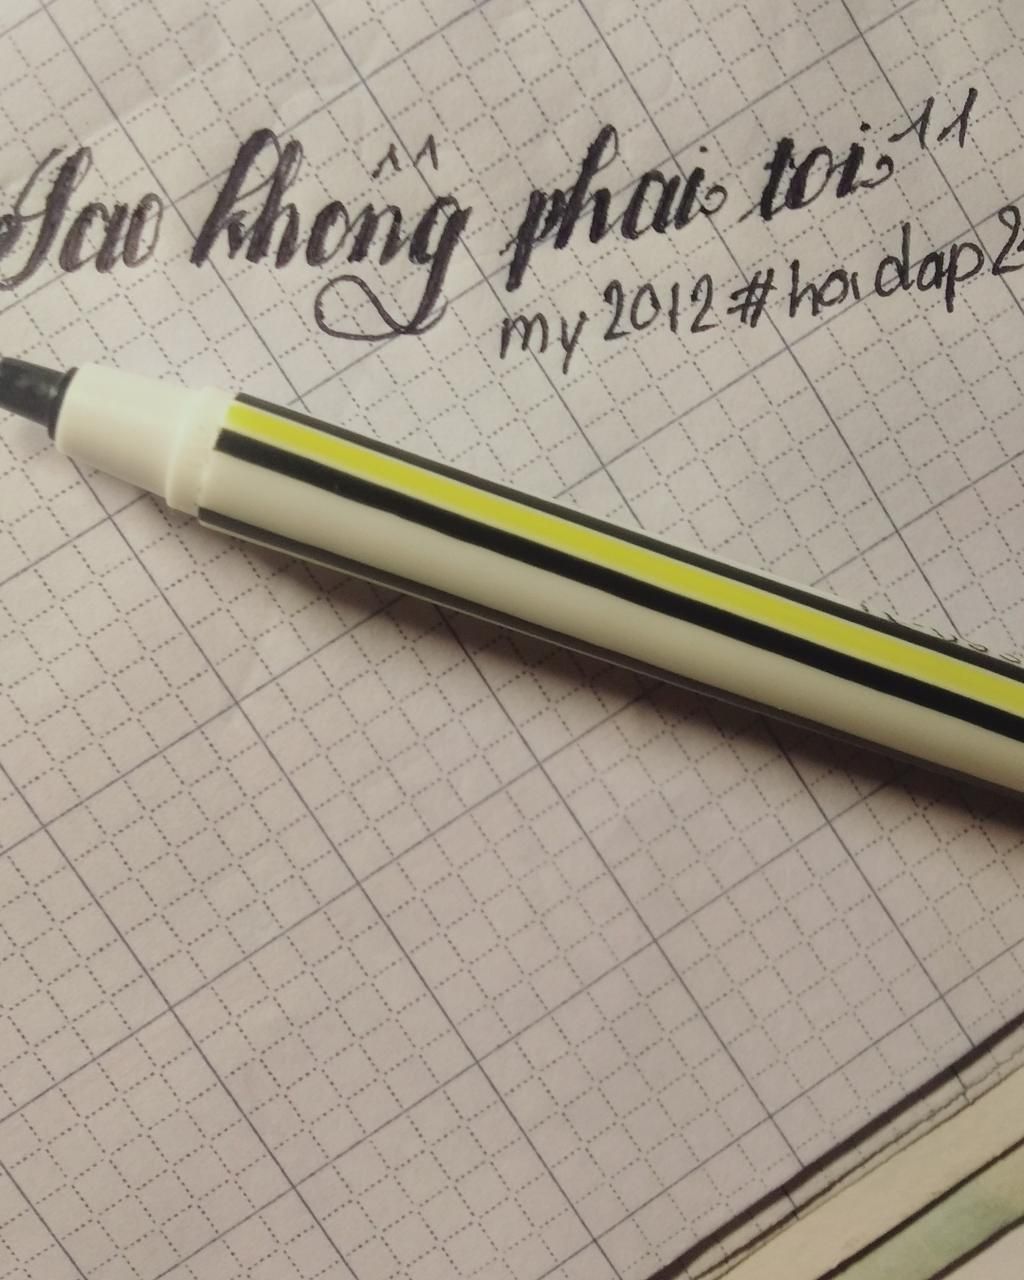 Sao không phai toi ^^
my2012#hoidap2